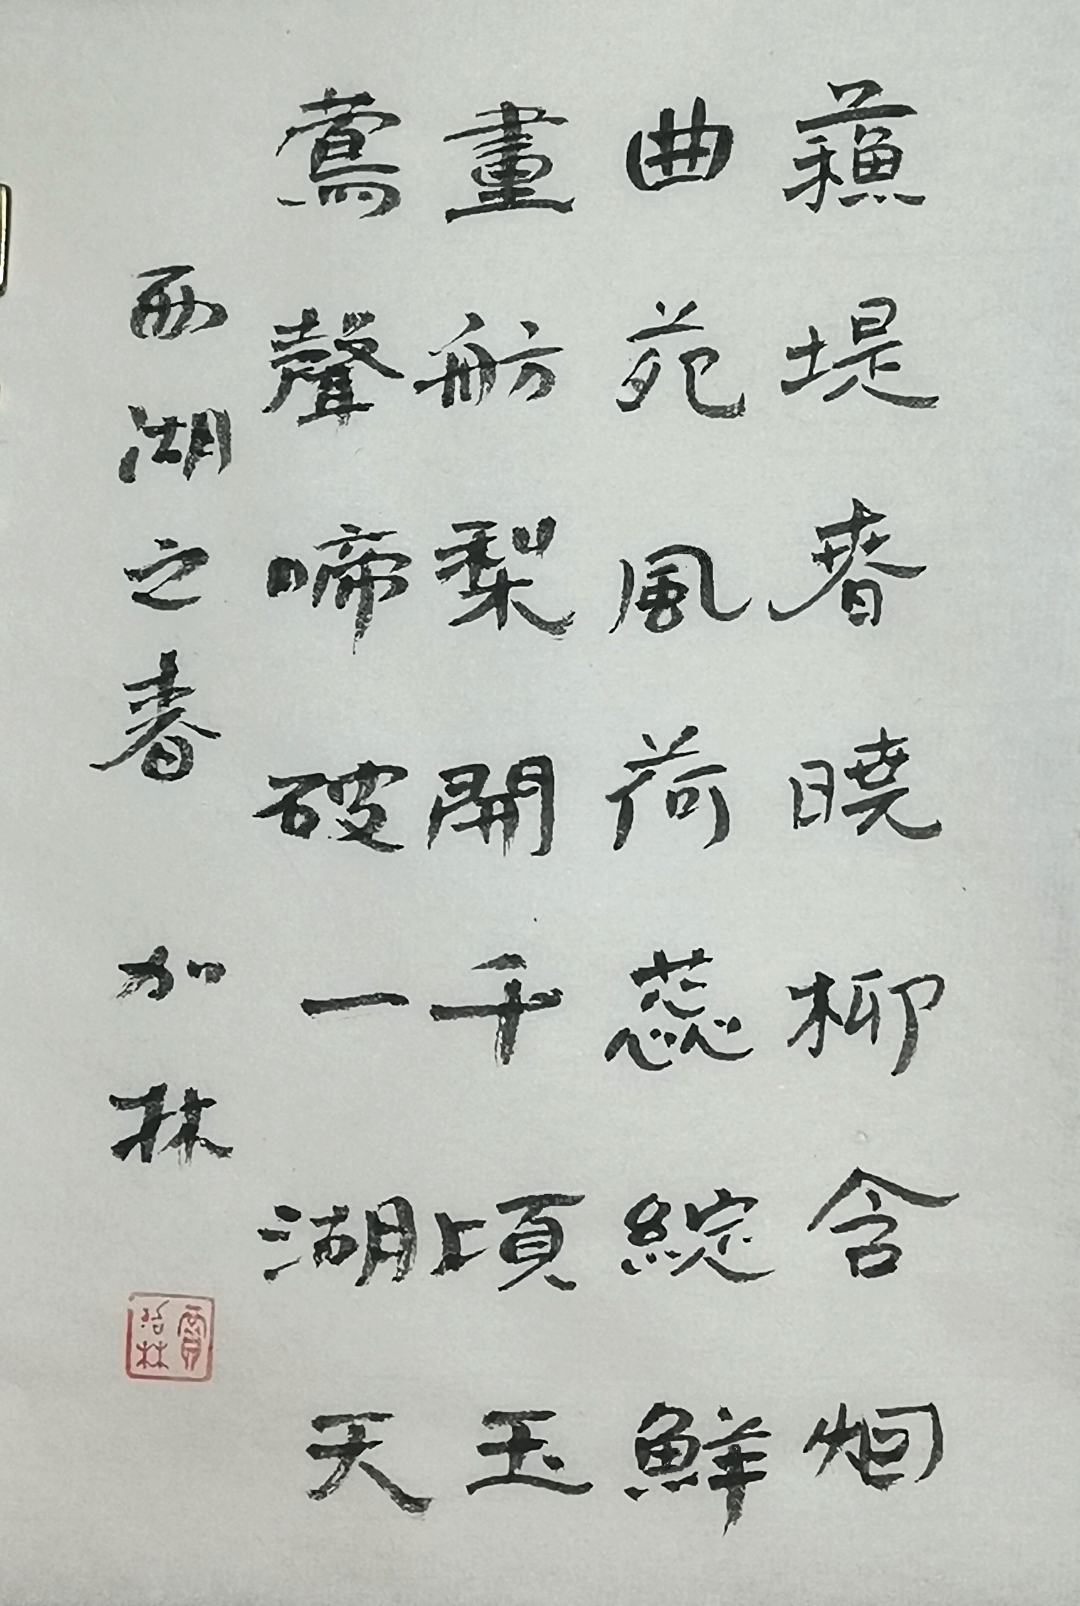 蘇堤春曉柳含烟
曲苑風荷蕊綻鮮
畫舫犁開千頃玉
鶯聲啼破一湖天
西湖之春 加林
賈
加林